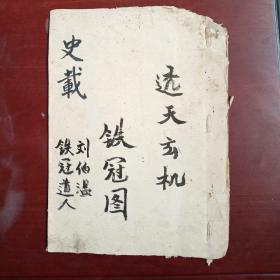 透天玄机
铁冠图
史載
刘伯温
铁冠道人